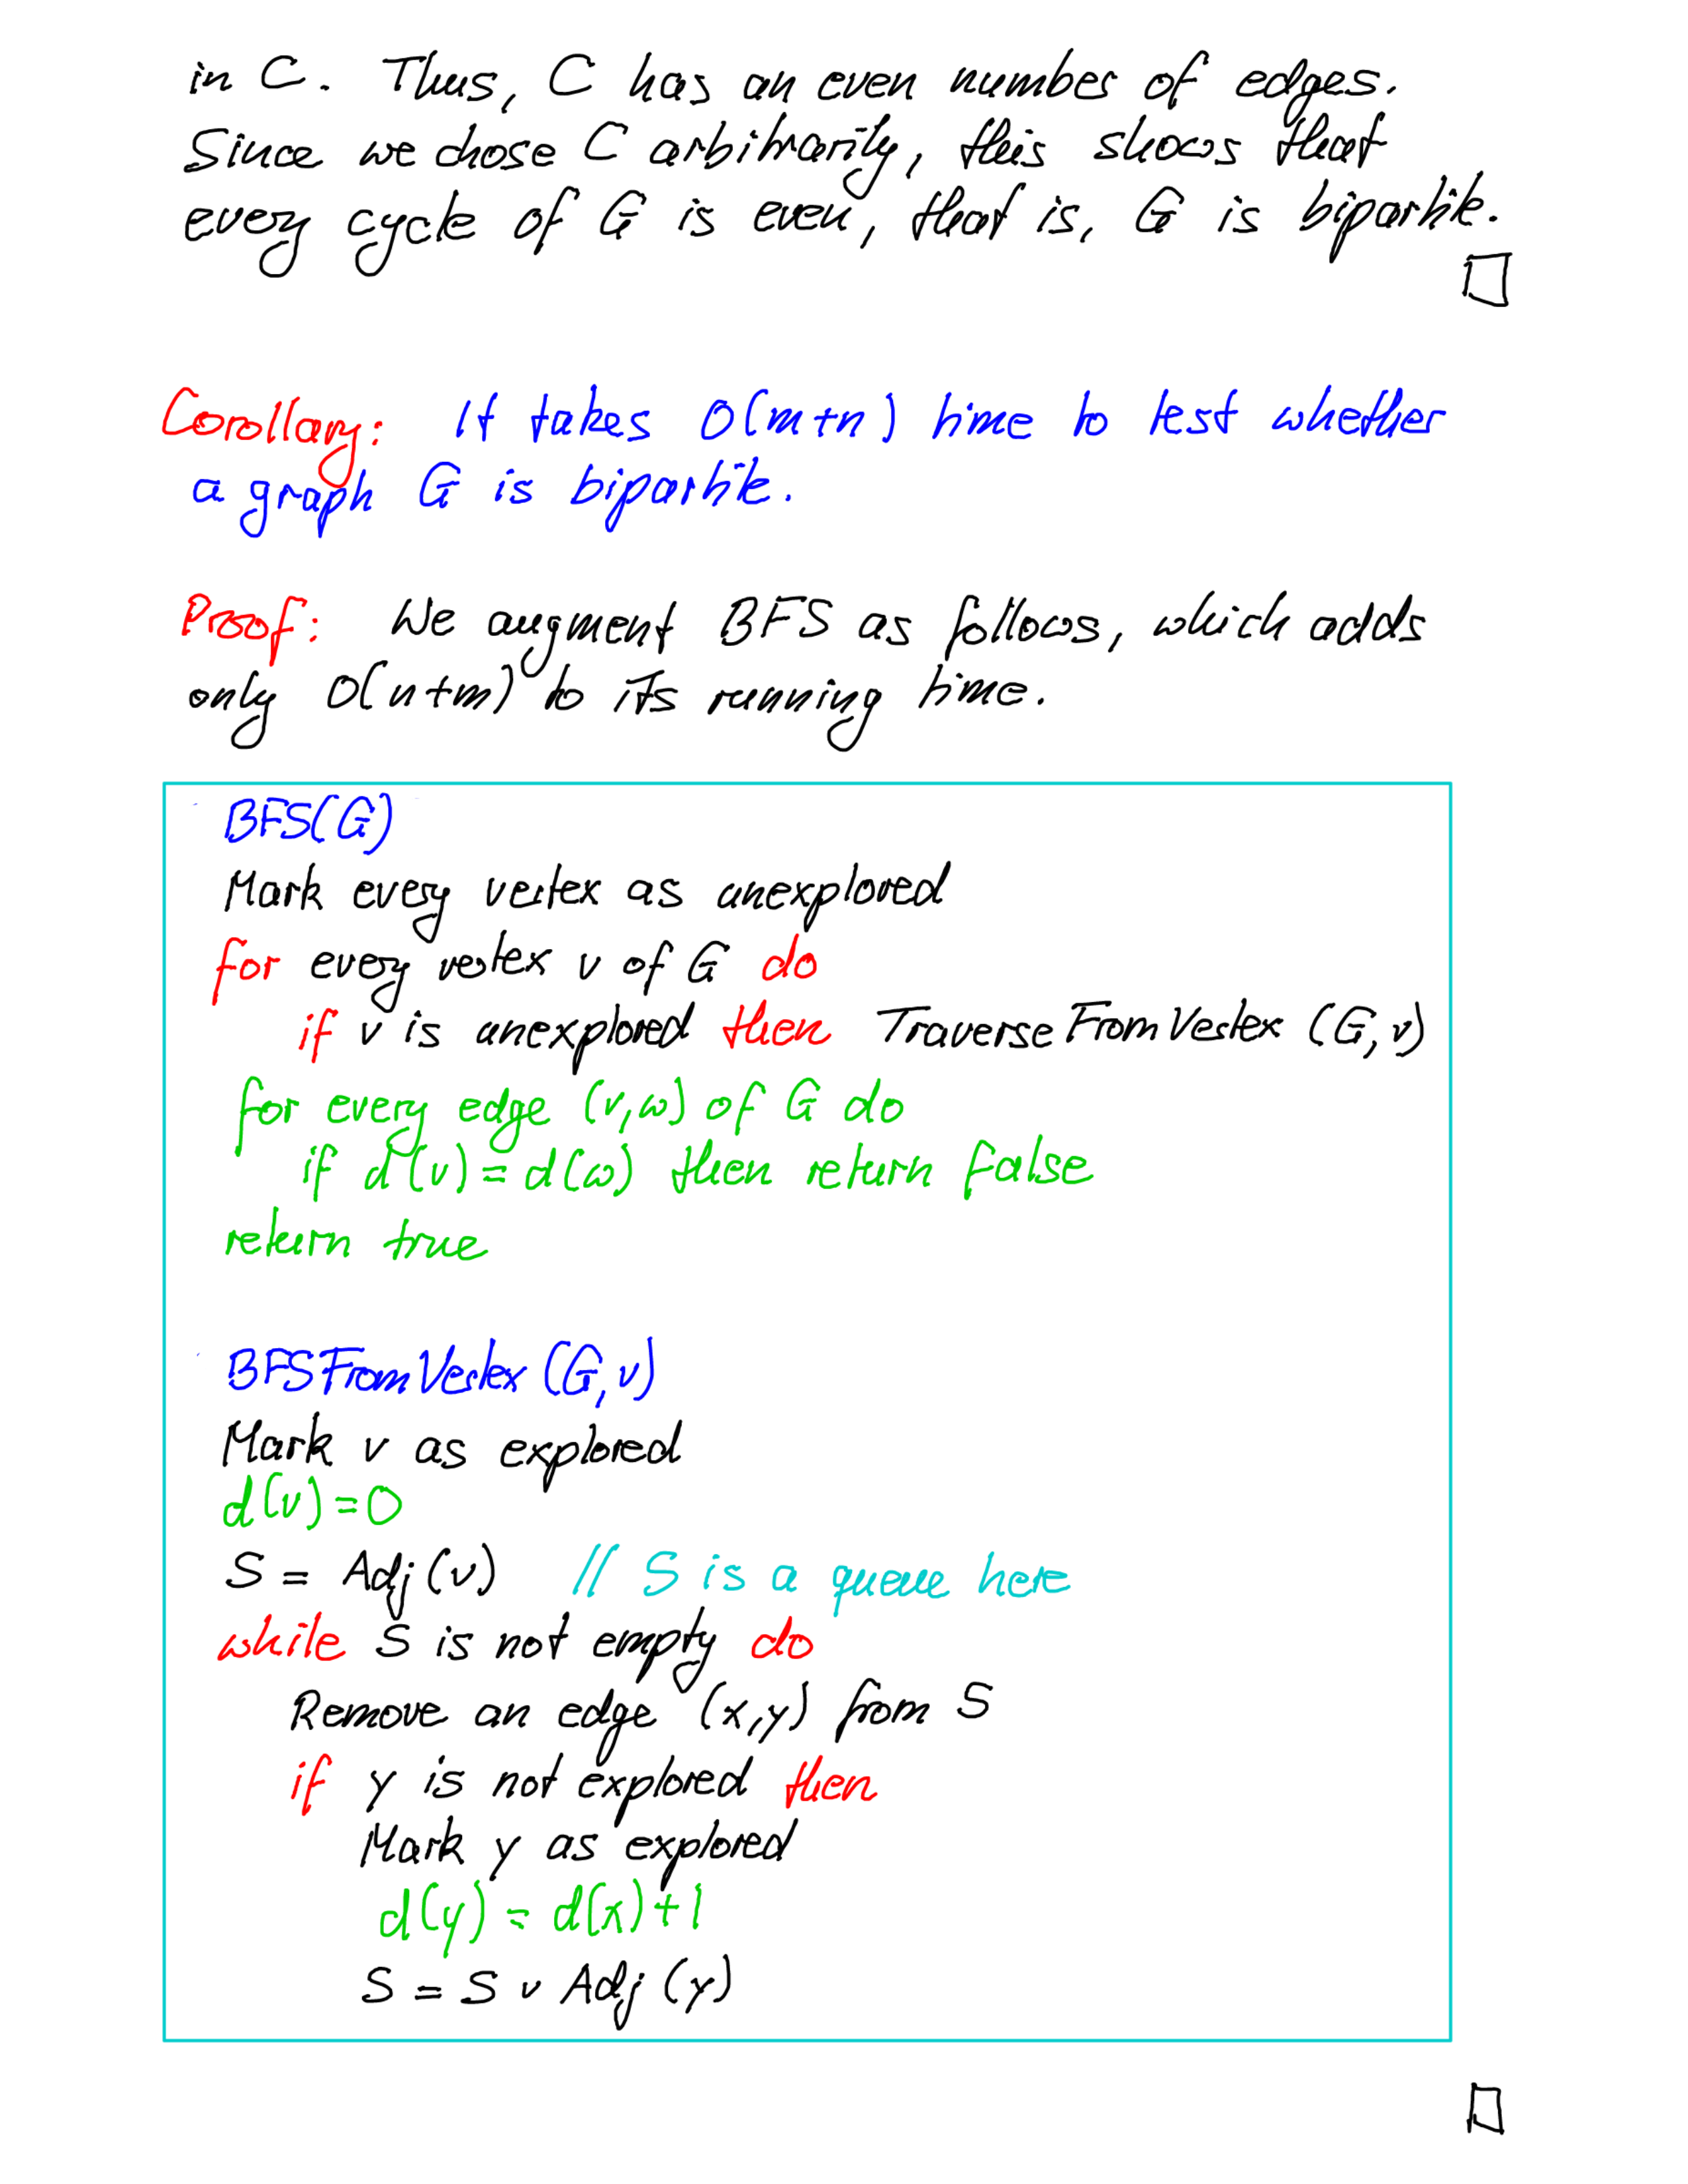 in C. Thus, C has an even number of edges.
Since we chose C arbitrarily, this shows that
every cycle of G is even, that is, G is bipartite.
Corollary: It takes O(m+n) time to test whether
a graph G is bipartite.
Proof: We augment BFS as follows, which adds
only O(n+m) to its running time.
BFS(G)
Mark every vertex as unexplored
for every vertex v of G do
if v is unexplored then TraverseFromVertex (G,v)
for every edge (v,w) of G do
if d(v) = d(w) then return false
return true
BFSFromVertex (G,v)
Mark v as explored
d(v)=0
S = Adj(v) // S is a queue here
while S is not empty do
Remove an edge (x,y) from S
if y is not explored then
Mark y as explored
d(y) = d(x)+1
S = S ∪ Adj(y)